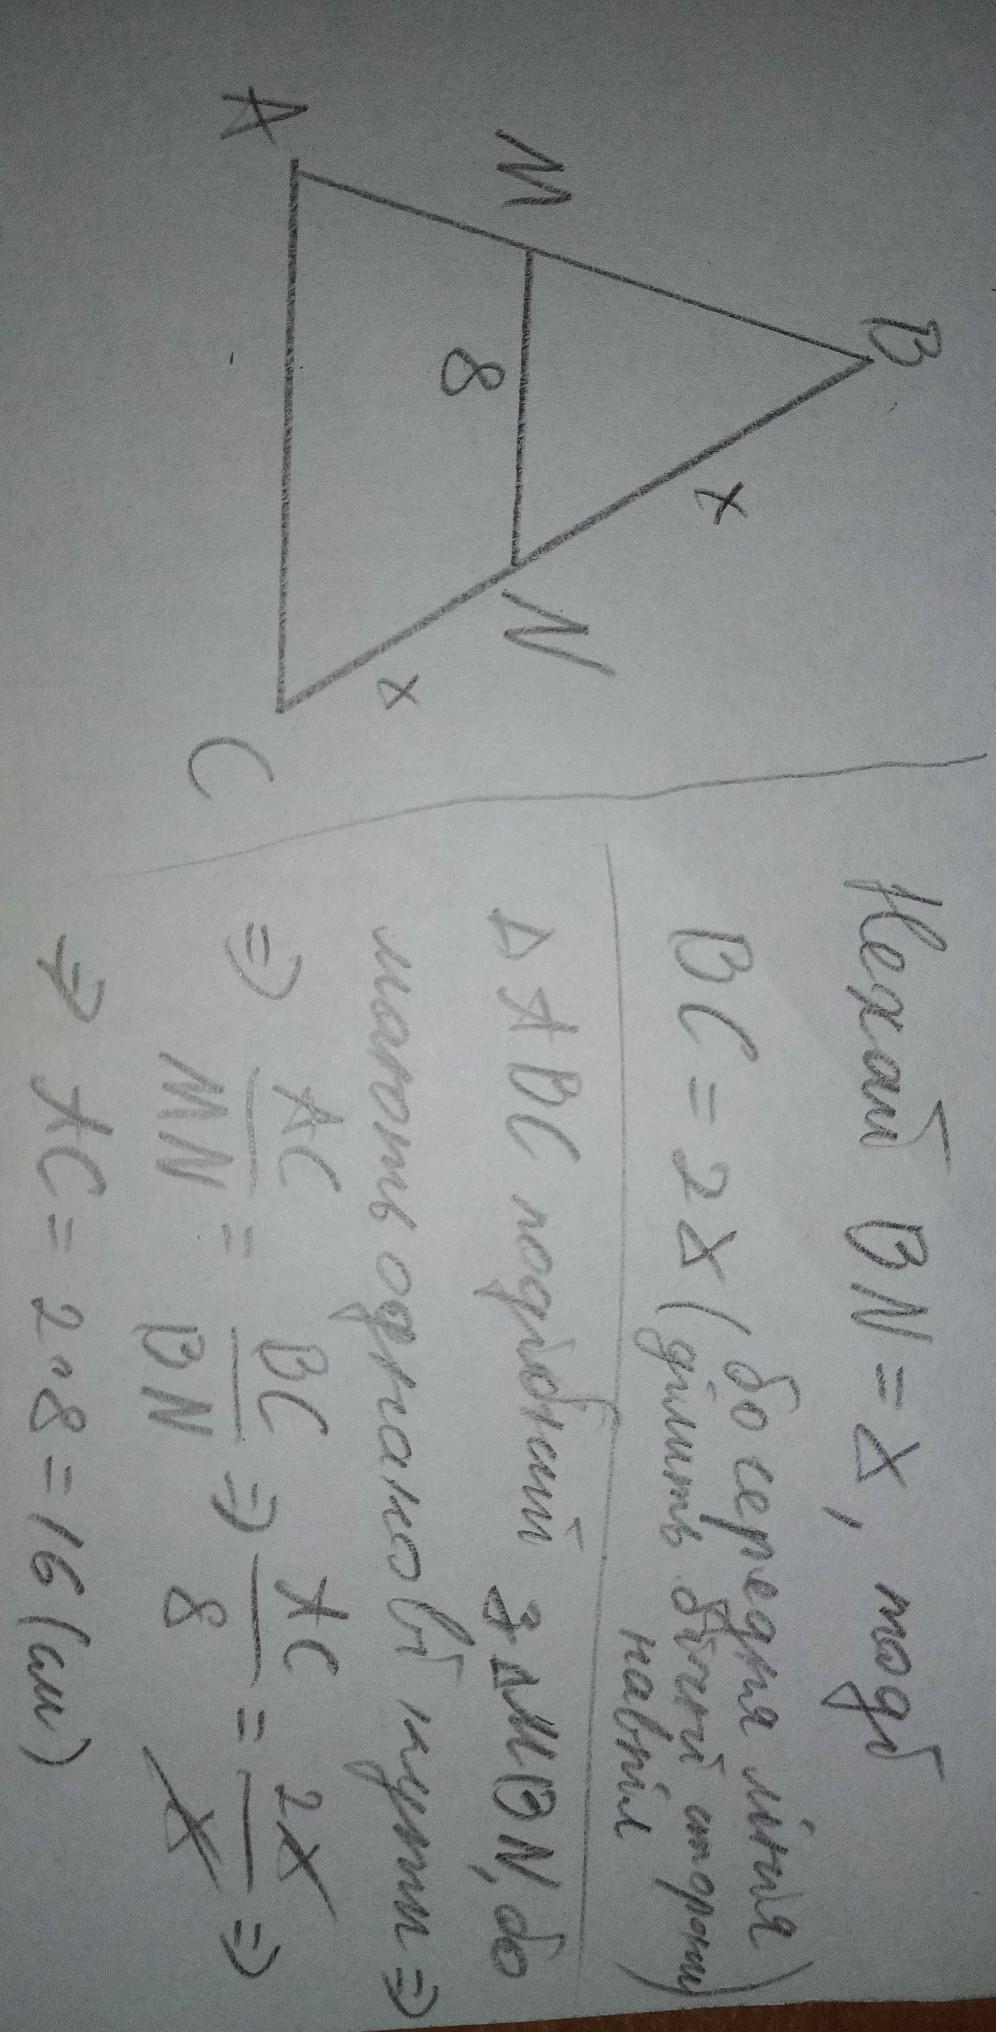 B
M
x
N
8
x
A
C
Нехай BN = x, тоді
BC = 2x (бо середня лінія
ділить бічний сторони
навпіл)
Δ ABC подібний з ΔMBN, бо
мають однакові кути ⇒
⇒ AC/MN = BC/BN ⇒ AC/8 = 2x/x ⇒
⇒ AC = 2·8 = 16 (см)